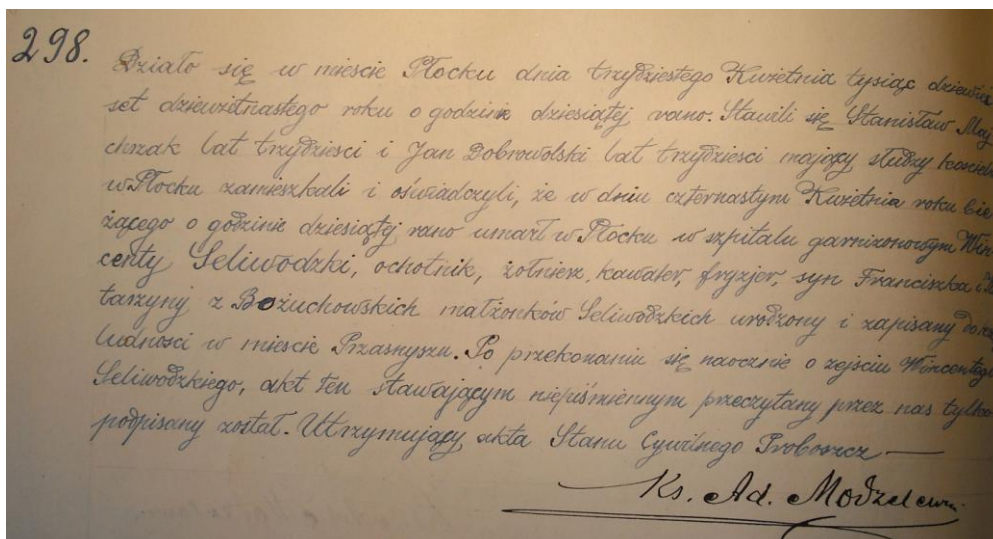 298.
Działo się w mieście Płocku dnia trzydziestego Kwietnia tysiąc dziewię
set dziewiętnastego roku o godzinie dziesiątej rano. Stawili się Stanisław Maj
chrzak lat trzydzieści i Jan Dobrowolski lat trzydzieści mający słudzy kościel
w Płocku zamieszkali i oświadczyli, że w dniu czternastym Kwietnia roku bie
żącego o godzinie dziesiątej rano umarł w Płocku w szpitalu garnizonowym Win
centy Seliwodzki, ochotnik, żołnierz, kawaler, fryzjer, syn Franciszka i
tarzyny z Bożuchowskich małżonków Seliwodzkich urodzony i zapisany do
ludności w mieście Przasnyszu. Po przekonaniu się naocznie o zejściu Wincentego
Seliwodzkiego, akt ten stawającym niepiśmiennym przeczytany przez nas tylko
podpisany został. Utrzymujący akta Stanu Cywilnego Proboszcz
Ks. Ad. Modzelewski